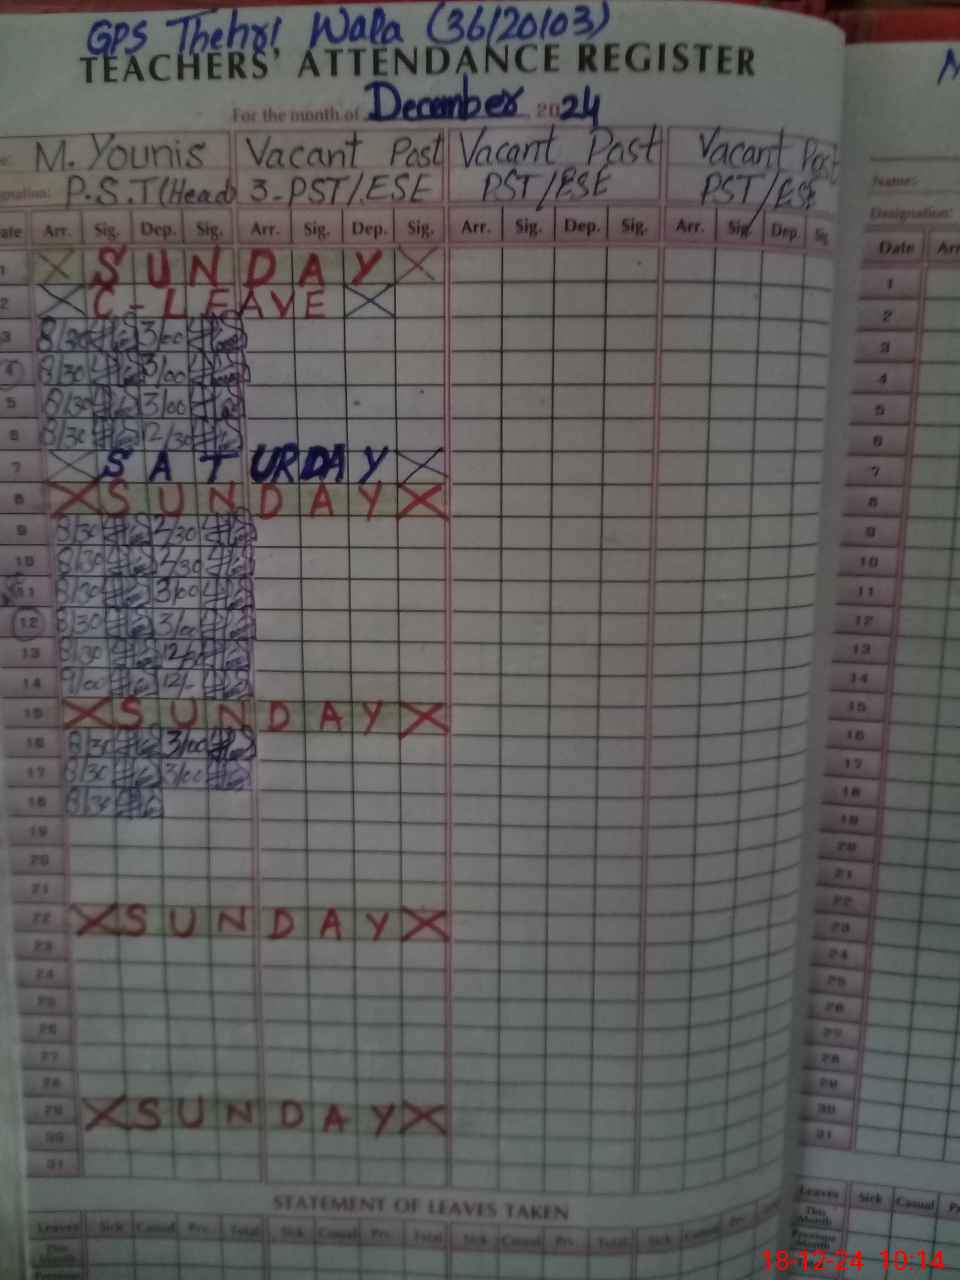 GPS Thehri Wala (36/20103)
TEACHERS' ATTENDANCE REGISTER
For the month of December 2024
M. Younis Vacant Post Vacant Post Vacant Post
P.S.T (Head) 3-PST/ESE PST/ESE PST/ESE
Arr. Sig. Dep. Sig. Arr. Sig. Dep. Sig. Arr. Sig. Dep. Sig. Arr. Sig. Dep. Sig.
1 SUNDAY
2 C-LEAVE
3 8/30 3/00
4 8/30 3/00
5 8/30 3/00
6 8/30 12/30
7 SATURDAY
8 SUNDAY
9 8/30 2/30
10 8/30 2/30
11 8/30 3/00
12 8/30 3/00
13 8/30
14 9/00 12/-
15 SUNDAY
16 8/30 3/00
17 8/30 3/00
18 8/30
19
20
21
22 SUNDAY
23
24
25
26
27
28
29 SUNDAY
30
31
STATEMENT OF LEAVES TAKEN
Leaves Sick Casual Prv. Total Sick Casual Prv. Total Sick Casual Prv. Total Sick Casual Prv.
This Month
Previous
Name:
Designation:
Date Arr
1
2
3
4
5
6
7
8
9
10
11
12
13
14
15
16
17
18
19
20
21
22
23
24
25
26
27
28
29
30
31
Leaves Sick Casual
This Month
Previous Month
18-12-24 10:14